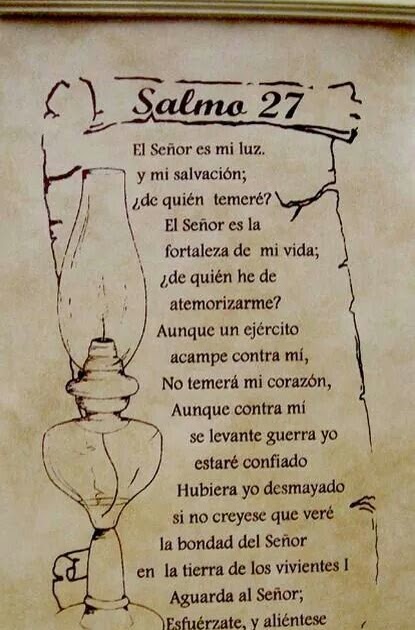 Salmo 27
El Señor es mi luz.
y mi salvación;
¿de quién temeré?
El Señor es la
fortaleza de mi vida;
¿de quién he de
atemorizarme?
Aunque un ejército
acampe contra mí,
No temerá mi corazón,
Aunque contra mí
se levante guerra yo
estaré confiado
Hubiera yo desmayado
si no creyese que veré
la bondad del Señor
en la tierra de los vivientes I
Aguarda al Señor;
Esfuérzate, y aliéntese